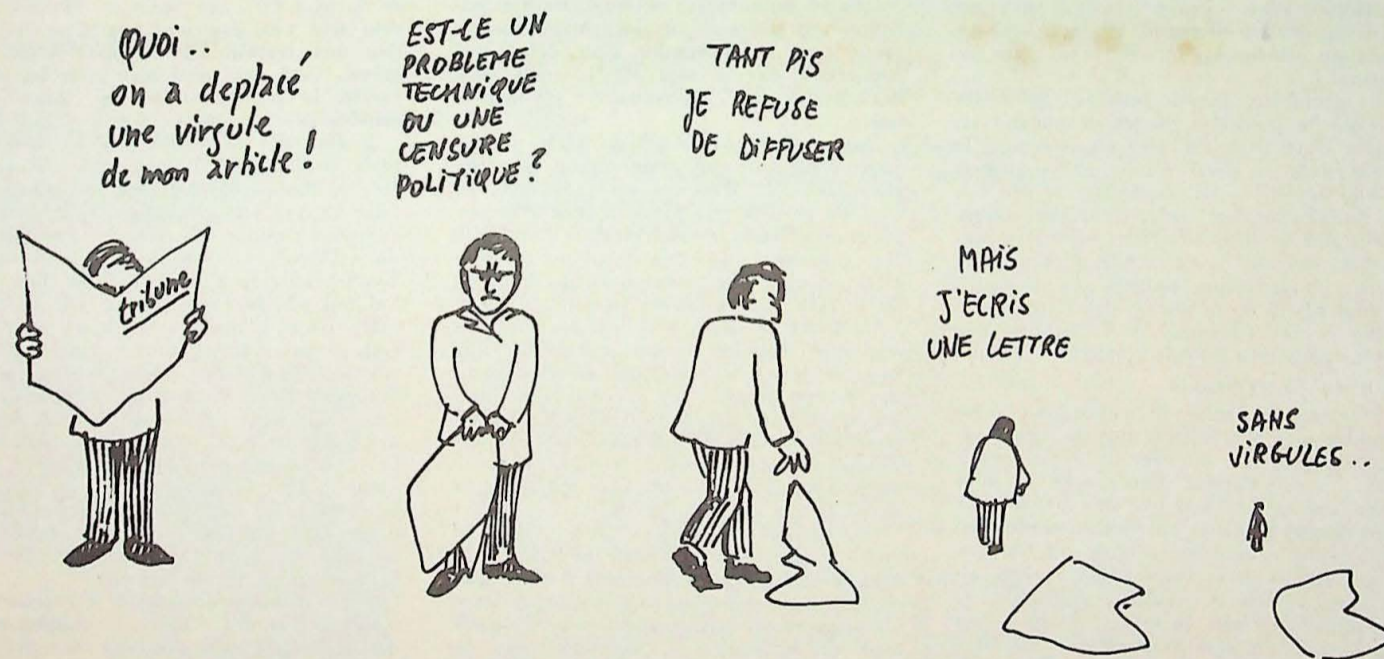 QUOi..
on a deplacé
une virgule
de mon article !
EST-CE UN
PROBLEME
TECHNiQUE
OU UNE
CENSURE
POLiTiQUE ?
TANT PiS
JE REFUSE
DE DiFFUSER
MAiS
J'ECRiS
UNE LETTRE
SANS
ViRGULES..
tribune